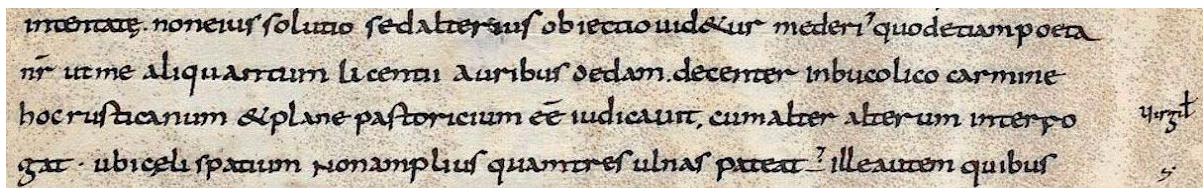 intentatę. non eius solutio sed alterius obiectio uid&ur mederi? quod etiam poeta
nr̄ ut me aliquantum licentii auribus dedam. decenter in bucolico carmine
hoc rusticanum & plane pastoricium eē̄ iudicauit, cum alter alterum interro
gat · ubi cęli spatium non amplius quam tres ulnas pateat? ille autem quibus
Virgił